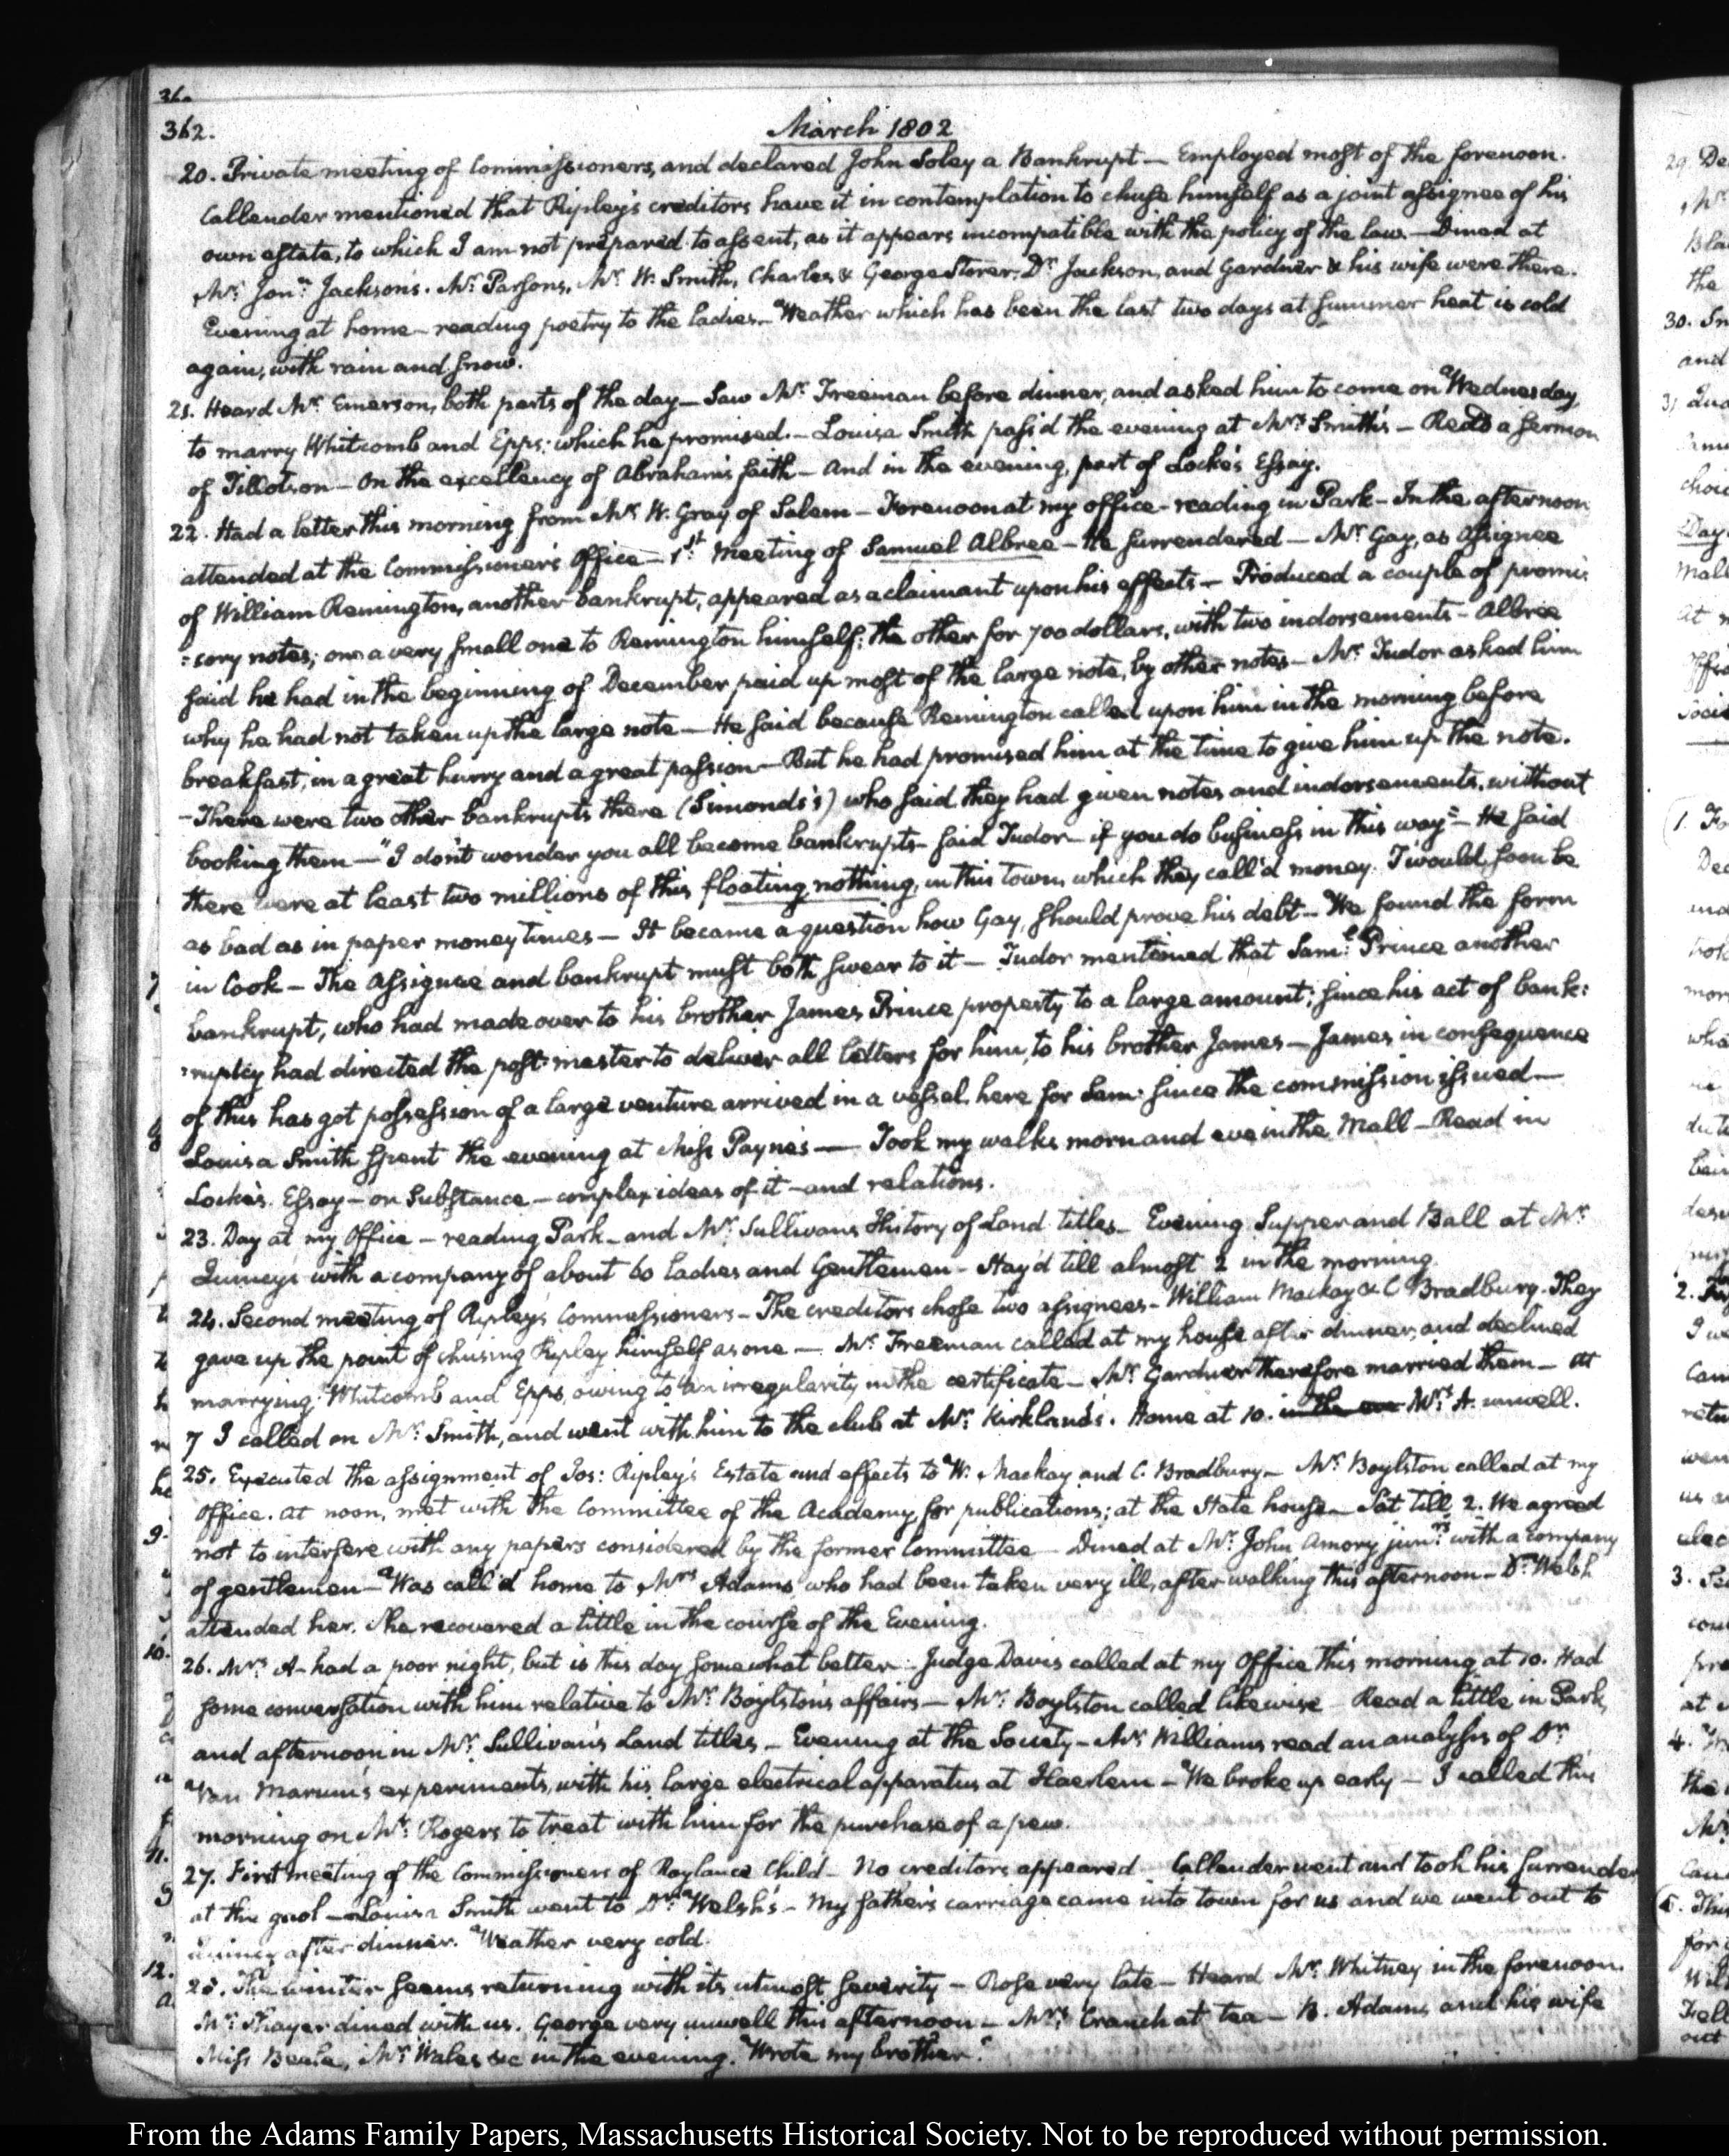 362.
March 1802
20. Private meeting of Commissioners, and declared John Soley a Bankrupt — Employed most of the forenoon.
Callender mentioned that Ripley's creditors have it in contemplation to chuse himself as a joint assignee of his
own estate, to which I am not prepared to assent, as it appears incompatible with the policy of the law. — Dined at
Mr. Jon.a Jackson's. Mr. Parsons, Mr. W. Smith, Charles & George Storer, Dr. Jackson, and Gardner & his wife were there.
Evening at home — reading poetry to the ladies — Weather which has been the last two days at summer heat is cold
again, with rain and snow.
21. Heard Mr. Emerson, both parts of the day — Saw Mr. Freeman before dinner, and asked him to come on Wednesday
to marry Whitcomb and Epps: which he promised. — Louisa Smith pass'd the evening at Mrs. Smith's — Read a sermon
of Tillotson — On the excellency of Abraham's faith — And in the evening, part of Locke's Essay.
22. Had a letter this morning from Mr. W. Gray of Salem — Forenoon at my office — reading in Park — In the afternoon
attended at the Commissioner's Office — 1st. Meeting of Samuel Albree — He surrendered — Mr. Gay, as Assignee
of William Remington, another bankrupt, appeared as a claimant upon his effects — Produced a couple of promis
:sory notes; one a very small one to Remington himself; the other for 700 dollars, with two indorsements — Albree
said he had in the beginning of December paid up most of the large note, by other notes — Mr. Tudor asked him
why he had not taken up the large note — He said because Remington called upon him in the morning before
breakfast, in a great hurry and a great passion — But he had promised him at the time to give him up the note.
— There were two other bankrupts there (Simonds's) who said they had given notes and indorsements, without
booking them — "I don't wonder you all become bankrupts — said Tudor — if you do business in this way" — He said
there were at least two millions of this floating nothing, in this town, which they call'd money. T'would soon be
as bad as in paper money times — It became a question how Gay, should prove his debt — We found the form
in Cook — The Assignee and bankrupt must both swear to it — Tudor mentioned that Saml. Prince another
bankrupt, who had made over to his brother James Prince property to a large amount; since his act of bank:
:ruptcy had directed the post-master to deliver all letters for him, to his brother James — James in consequence
of this has got possession of a large venture arrived in a vessel here for Sam: since the commission issued —
Louisa Smith spent the evening at Miss Payne's — Took my walks morn and eve in the Mall — Read in
Locke's Essay — on Substance — complex ideas of it — and relations.
23. Day at my Office — reading Park — and Mr. Sullivans History of Land titles — Evening Supper and Ball at Mr.
Quincy's with a company of about 60 ladies and Gentlemen — Stay'd till almost 2 in the morning.
24. Second meeting of Ripley's Commissioners — The creditors chose two assignees — William Mackay & C Bradbury. They
gave up the point of chusing Ripley himself as one — Mr. Freeman called at my house after dinner, and declined
marrying Whitcomb and Epps, owing to an irregularity in the certificate — Mr. Gardner therefore married them — At
7 I called on Mr. Smith, and went with him to the club at Mr. Kirkland's. Home at 10. in the eve Mrs. A. unwell.
25. Executed the assignment of Jos: Ripley's Estate and effects to W. Mackay and C. Bradbury — Mr. Boylston called at my
Office. At noon, met with the Committee of the Academy for publications; at the State house — Sat till 2. We agreed
not to interfere with any papers considered by the former Committee — Dined at Mr. John Amory junrs. with a company
of gentlemen — Was call'd home to Mrs. Adams, who had been taken very ill, after walking this afternoon — Dr. Welsh
attended her. She recovered a little in the course of the Evening.
26. Mrs. A — had a poor night, but is this day somewhat better — Judge Davis called at my Office this morning at 10. Had
some conversation with him relative to Mr. Boylston's affairs — Mr. Boylston called likewise — Read a little in Park,
and afternoon in Mr. Sullivan's Land titles — Evening at the Society — Mr. Williams read an analysis of Dr.
Van Marum's experiments, with his large electrical apparatus at Haerlem — We broke up early — I called this
morning on Mr. Rogers to treat with him for the purchase of a pew.
27. First meeting of the Commissioners of Roylance Child — No creditors appeared — Callender went and took his surrender
at the gaol — Louisa Smith went to Dr. Welsh's — My father's carriage came into town for us and we went out to
Quincy after dinner. Weather very cold.
28. The winter seems returning with its utmost severity — Rose very late — Heard Mr. Whitney in the forenoon.
Mr. Thayer dined with us. George very unwell this afternoon — Mrs. Cranch at tea — B. Adams and his wife
Miss Beale, Mr. Wales &c in the evening. Wrote my brother.
From the Adams Family Papers, Massachusetts Historical Society. Not to be reproduced without permission.